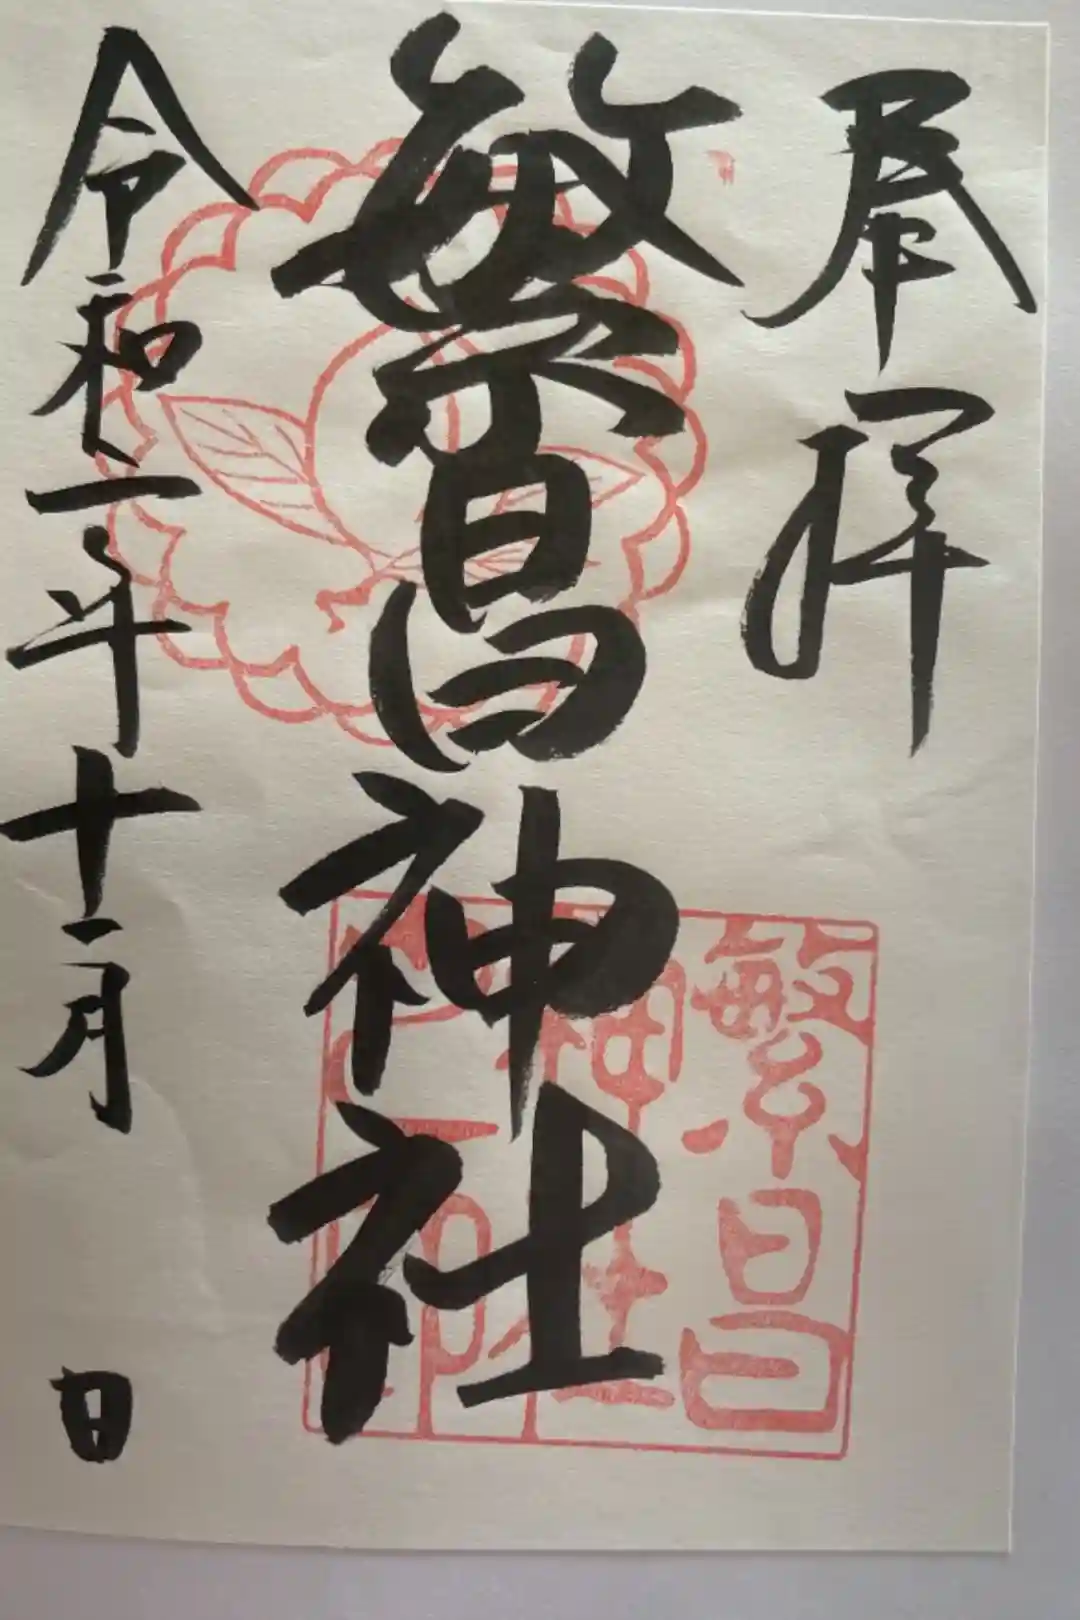 奉拝
繁昌神社
繁昌
神社
令和二年十二月 日